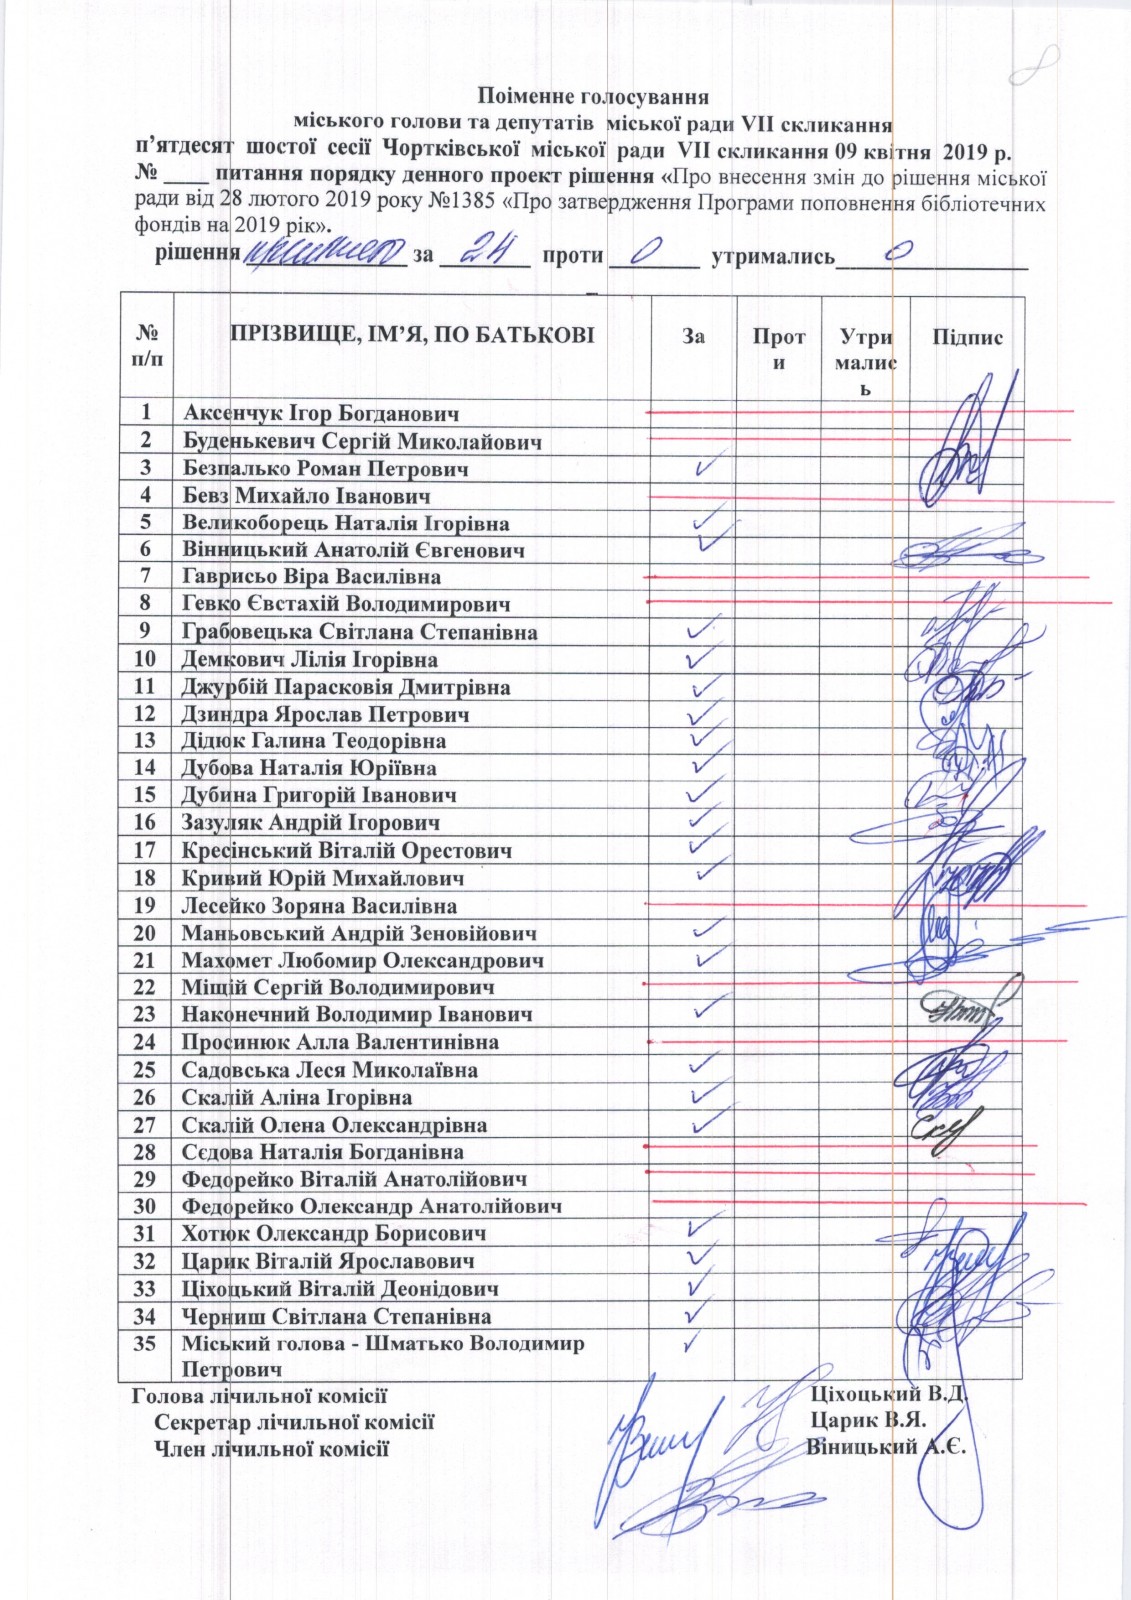 8
Поіменне голосування
міського голови та депутатів міської ради VII скликання
п’ятдесят шостої сесії Чортківської міської ради VII скликання 09 квітня 2019 р.
№ ____ питання порядку денного проект рішення «Про внесення змін до рішення міської
ради від 28 лютого 2019 року №1385 «Про затвердження Програми поповнення бібліотечних
фондів на 2019 рік».
рішення прийнято за 24 проти 0 утримались 0
№ п/п ПРІЗВИЩЕ, ІМ’Я, ПО БАТЬКОВІ За Проти Утримались Підпис
1 Аксенчук Ігор Богданович
2 Буденькевич Сергій Миколайович
3 Безпалько Роман Петрович ✓
4 Бевз Михайло Іванович
5 Великоборець Наталія Ігорівна ✓
6 Вінницький Анатолій Євгенович ✓
7 Гаврисьо Віра Василівна
8 Гевко Євстахій Володимирович
9 Грабовецька Світлана Степанівна ✓
10 Демкович Лілія Ігорівна ✓
11 Джурбій Парасковія Дмитрівна ✓
12 Дзиндра Ярослав Петрович ✓
13 Дідюк Галина Теодорівна ✓
14 Дубова Наталія Юріївна ✓
15 Дубина Григорій Іванович ✓
16 Зазуляк Андрій Ігорович ✓
17 Кресінський Віталій Орестович ✓
18 Кривий Юрій Михайлович ✓
19 Лесейко Зоряна Василівна
20 Маньовський Андрій Зеновійович ✓
21 Махомет Любомир Олександрович ✓
22 Міщій Сергій Володимирович
23 Наконечний Володимир Іванович ✓
24 Просинюк Алла Валентинівна
25 Садовська Леся Миколаївна ✓
26 Скалій Аліна Ігорівна ✓
27 Скалій Олена Олександрівна ✓
28 Сєдова Наталія Богданівна
29 Федорейко Віталій Анатолійович
30 Федорейко Олександр Анатолійович
31 Хотюк Олександр Борисович ✓
32 Царик Віталій Ярославович ✓
33 Ціхоцький Віталій Деонідович ✓
34 Черниш Світлана Степанівна ✓
35 Міський голова - Шматько Володимир ✓
Петрович
Голова лічильної комісії Ціхоцький В.Д.
Секретар лічильної комісії Царик В.Я.
Член лічильної комісії Віницький А.Є.